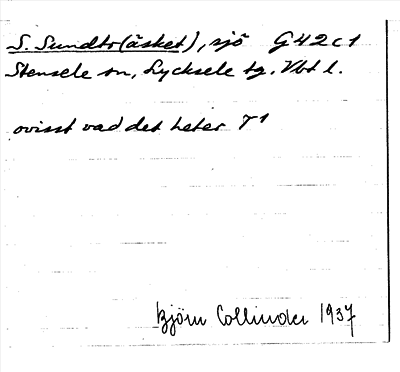 S. Sundtr(äsket), sjö G42c1
Stensele sn, Lycksele tg. Vbt l.
ovisst vad det heter T1
Björn Collinder 1937